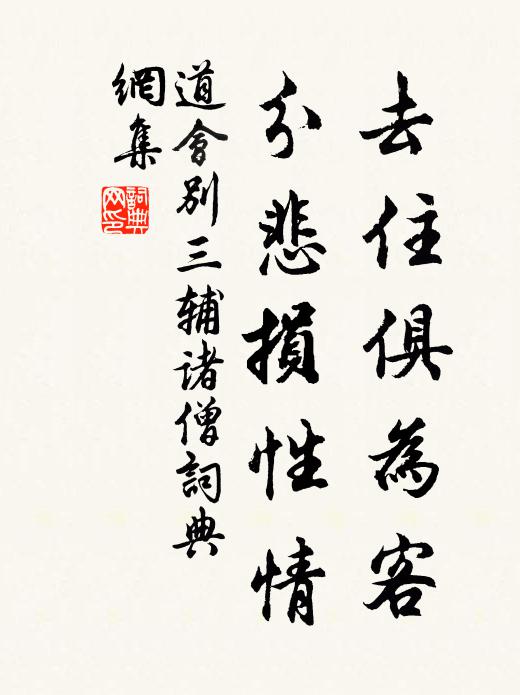 去住俱為客
分悲損性情
道會別三輔诸僧詞典
網集
詞典
网印